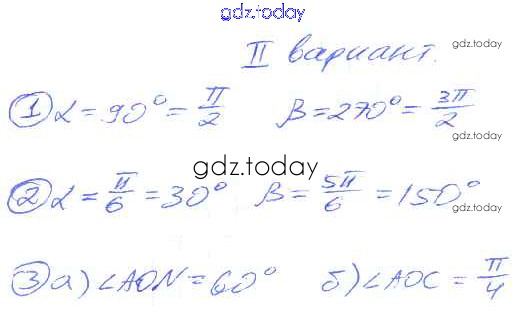 gdz.today
II вариант. gdz.today
① α = 90° = π/2 β = 270° = 3π/2 gdz.today
gdz.today
② α = π/6 = 30° β = 5π/6 = 150° gdz.today
③ а) ∠AON = 60° б) ∠AOC = π/4 gdz.today